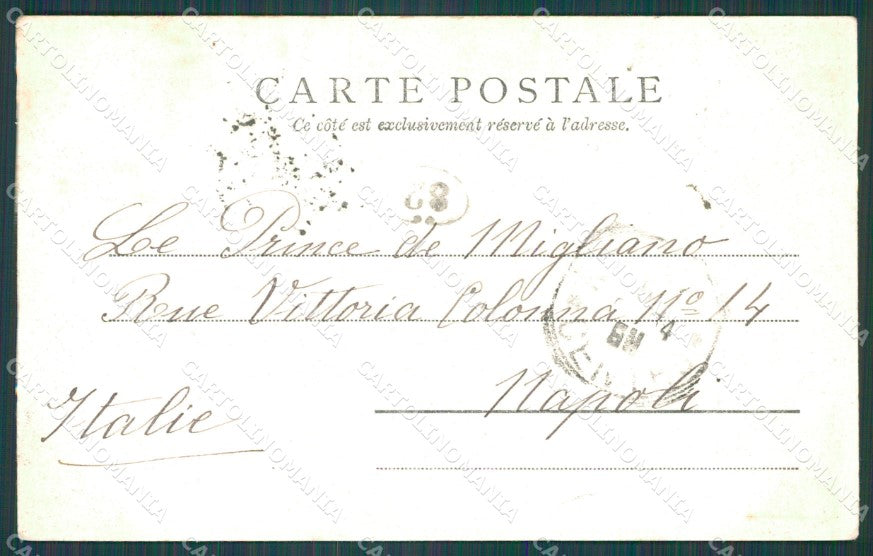 CARTE POSTALE
Ce côté est exclusivement réservé à l'adresse.
Le Prince de Migliano
Rue Vittoria Colonna Nº 14
Napoli
Italie
CARTOLINOMANIA